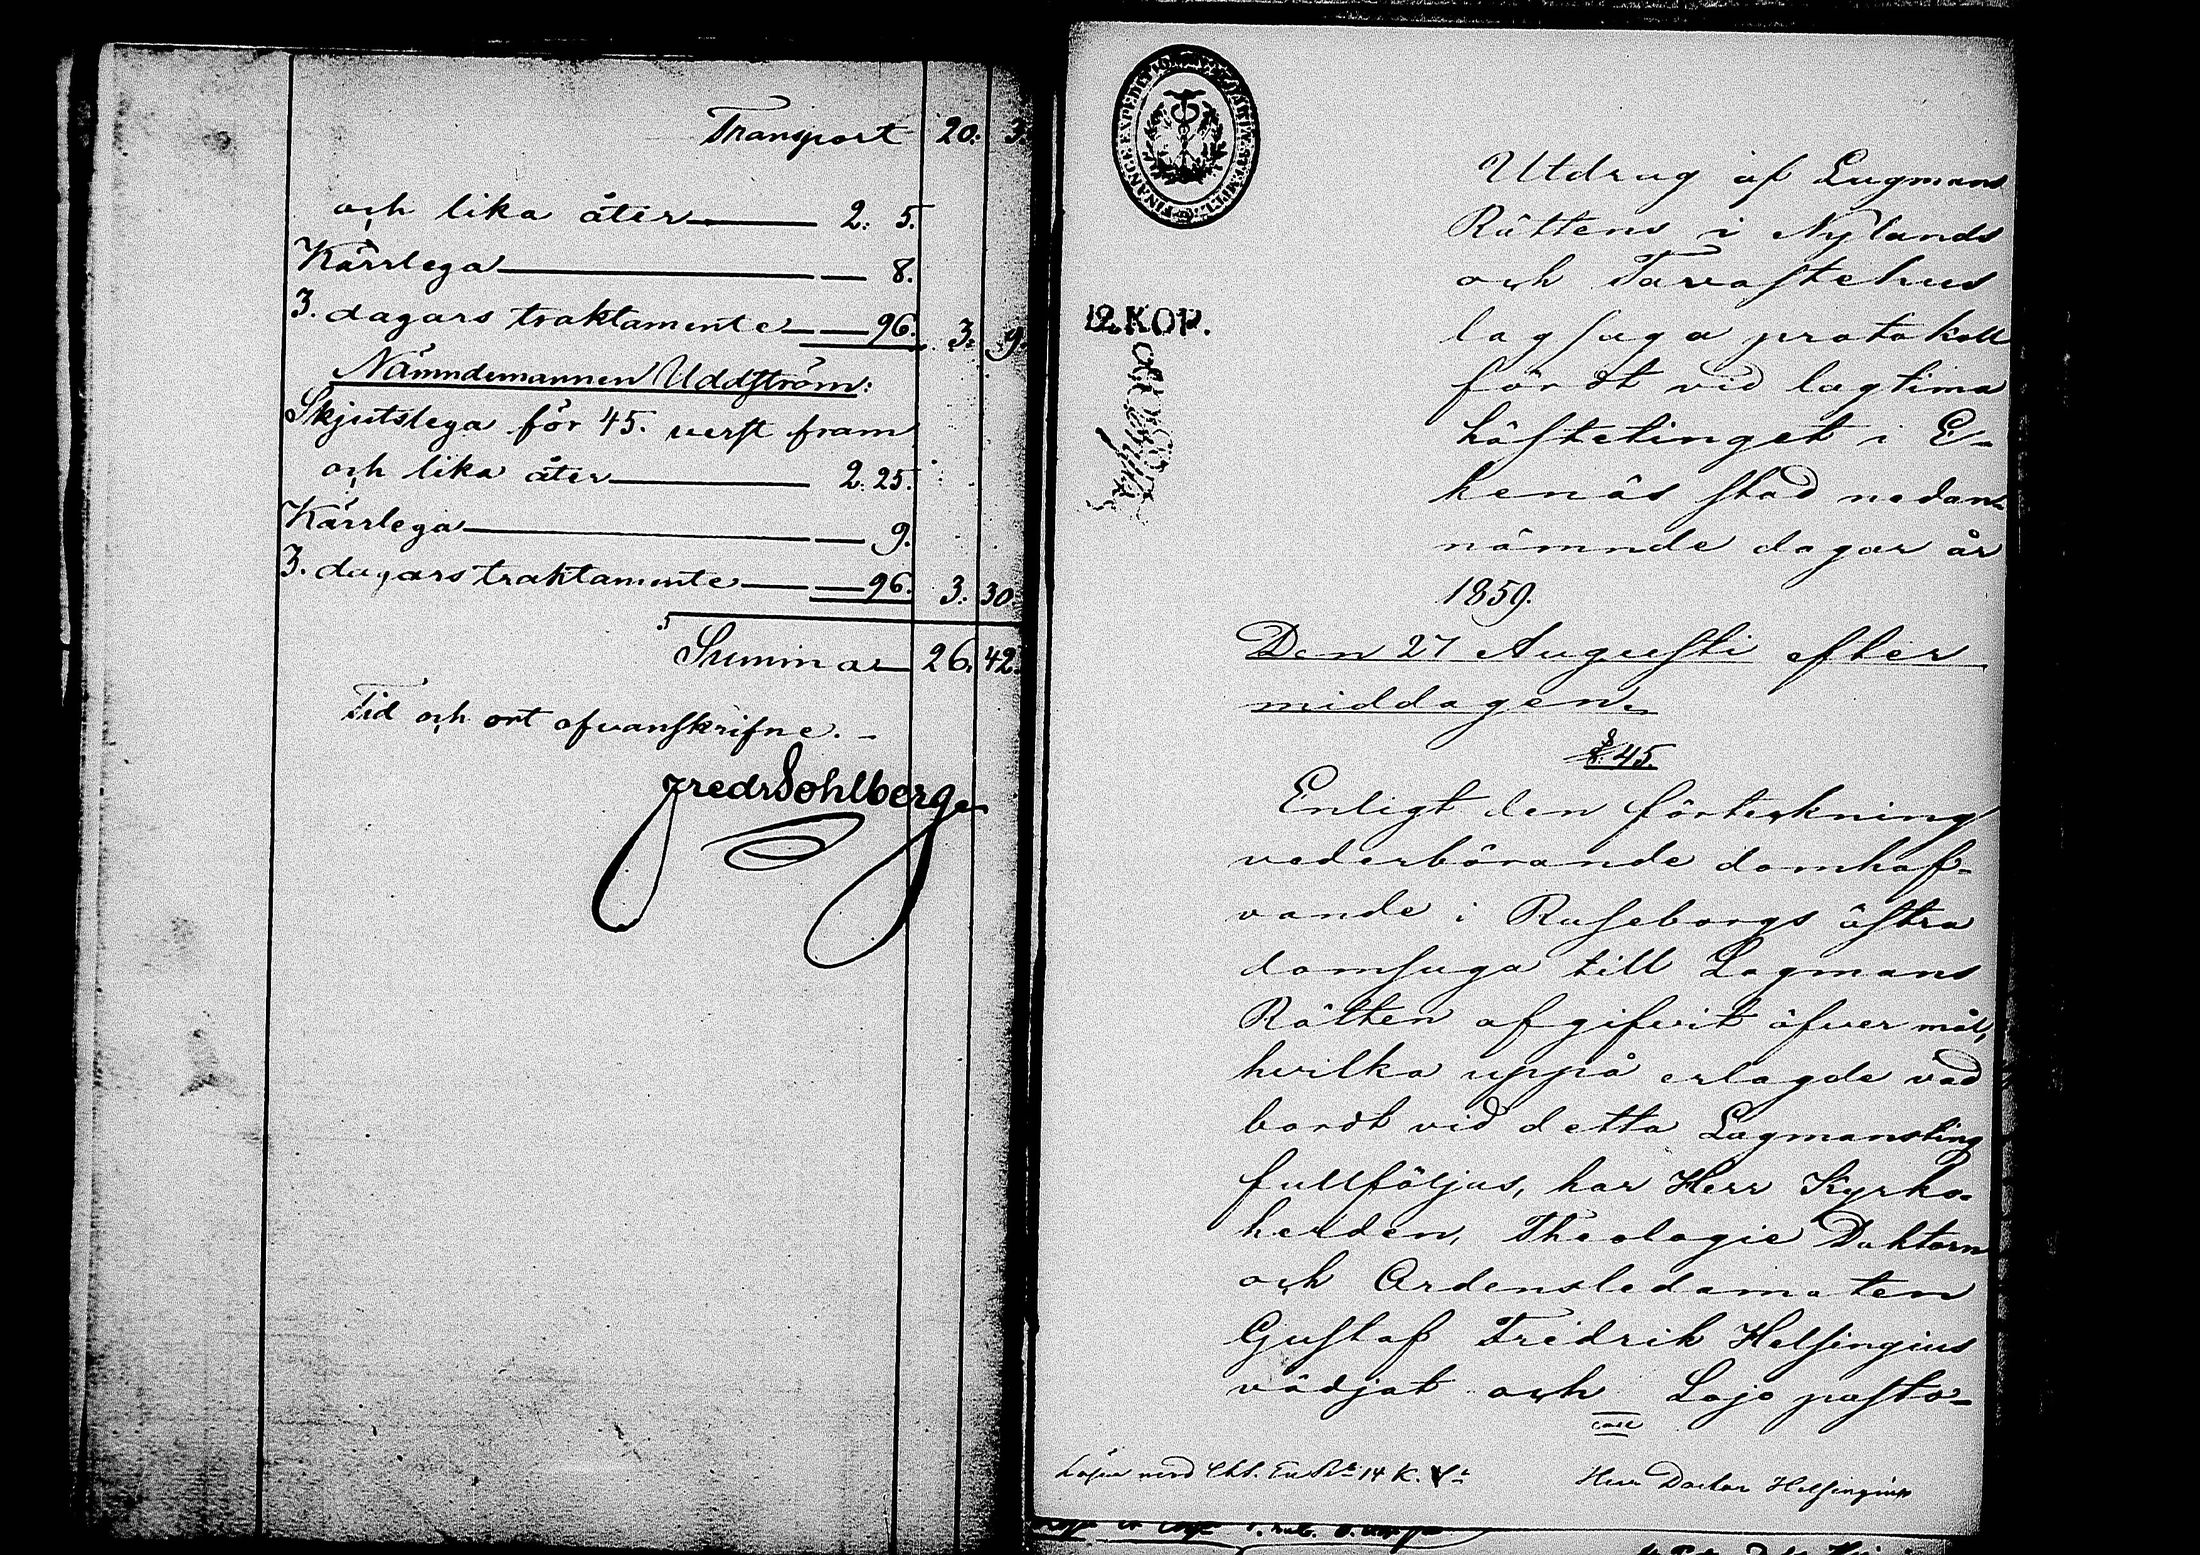 Transport 20: 3.
och lika åter 2: 5.
Kärrlega 8.
3. dagars traktamente 96. 3: 9.
Nämndemannen Uddström:
Skjutslega för 45. verst fram
och lika åter 2. 25.
Kärrlega 9.
3. dagars traktamente 96. 3: 30.
Summa 26. 42.
Tid och ort ofvanskrifne.
Fredr Sohlberg
12. KOP.
Utdrag af Lagmans
Rättens i Nylands
och Tavastehus
lagsaga protokoll
fördt vid lagtima
hösttinget i E-
kenäs stad nedan-
nämnde dagar år
1859.
Den 27 Augusti efter
middagen.
§ 45.
Enligt den förteckning
vederbörande domhaf-
vande i Raseborgs östra
domsaga till Lagmans
Rätten afgifvit öfver mål,
hvilka uppå erlagde vad
bordt vid detta Lagmansting
fullföljas, har Herr Kyrko-
herden, Theologie Doktorn
och Ordensledamoten
Gustaf Fredrik Helsingius
vädjat och Lojo pasto-
Herr Doctor Helsingius